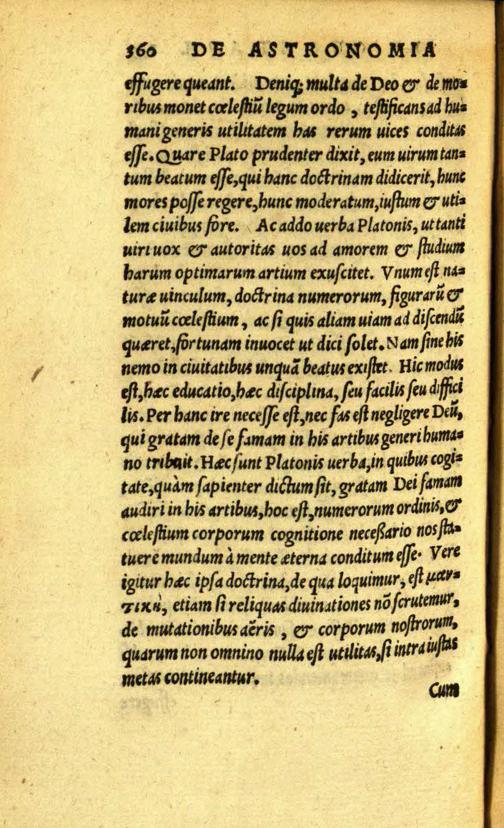 360 DE ASTRONOMIA
effugere queant. Deniq; multa de Deo & de mo=
ribus monet cœlestiũ legum ordo, testificans ad hu=
mani generis utilitatem has rerum uices conditas
esse. Quare Plato prudenter dixit, eum uirum tan=
tum beatum esse, qui hanc doctrinam didicerit, hunc
mores posse regere, hunc moderatum, iustum & uti=
lem ciuibus fore. Ac addo uerba Platonis, ut tanti
uiri uox & autoritas uos ad amorem & studium
harum optimarum artium exuscitet. Vnum est na=
turæ uinculum, doctrina numerorum, figurarũ &
motuũ cœlestium, ac si quis aliam uiam ad discendũ
quæret, fortunam inuocet ut dici solet. Nam sine his
nemo in ciuitatibus unquã beatus existet. Hic modus
est, hæc educatio, hæc disciplina, seu facilis seu diffici
lis. Per hanc ire necesse est, nec fas est negligere Deũ,
qui gratam de se famam in his artibus generi huma=
no tribuit. Hæc sunt Platonis uerba, in quibus cogi=
tate, quàm sapienter dictum sit, gratam Dei famam
audiri in his artibus, hoc est, numerorum ordinis, &
cœlestium corporum cognitione necessario nos sta=
tuere mundum à mente æterna conditum esse. Vere
igitur hæc ipsa doctrina, de qua loquimur, est μαν=
τικὴ, etiam si reliquas diuinationes nõ scrutemur,
de mutationibus aëris, & corporum nostrorum,
quarum non omnino nulla est utilitas, si intra iustas
metas contineantur.
Cum